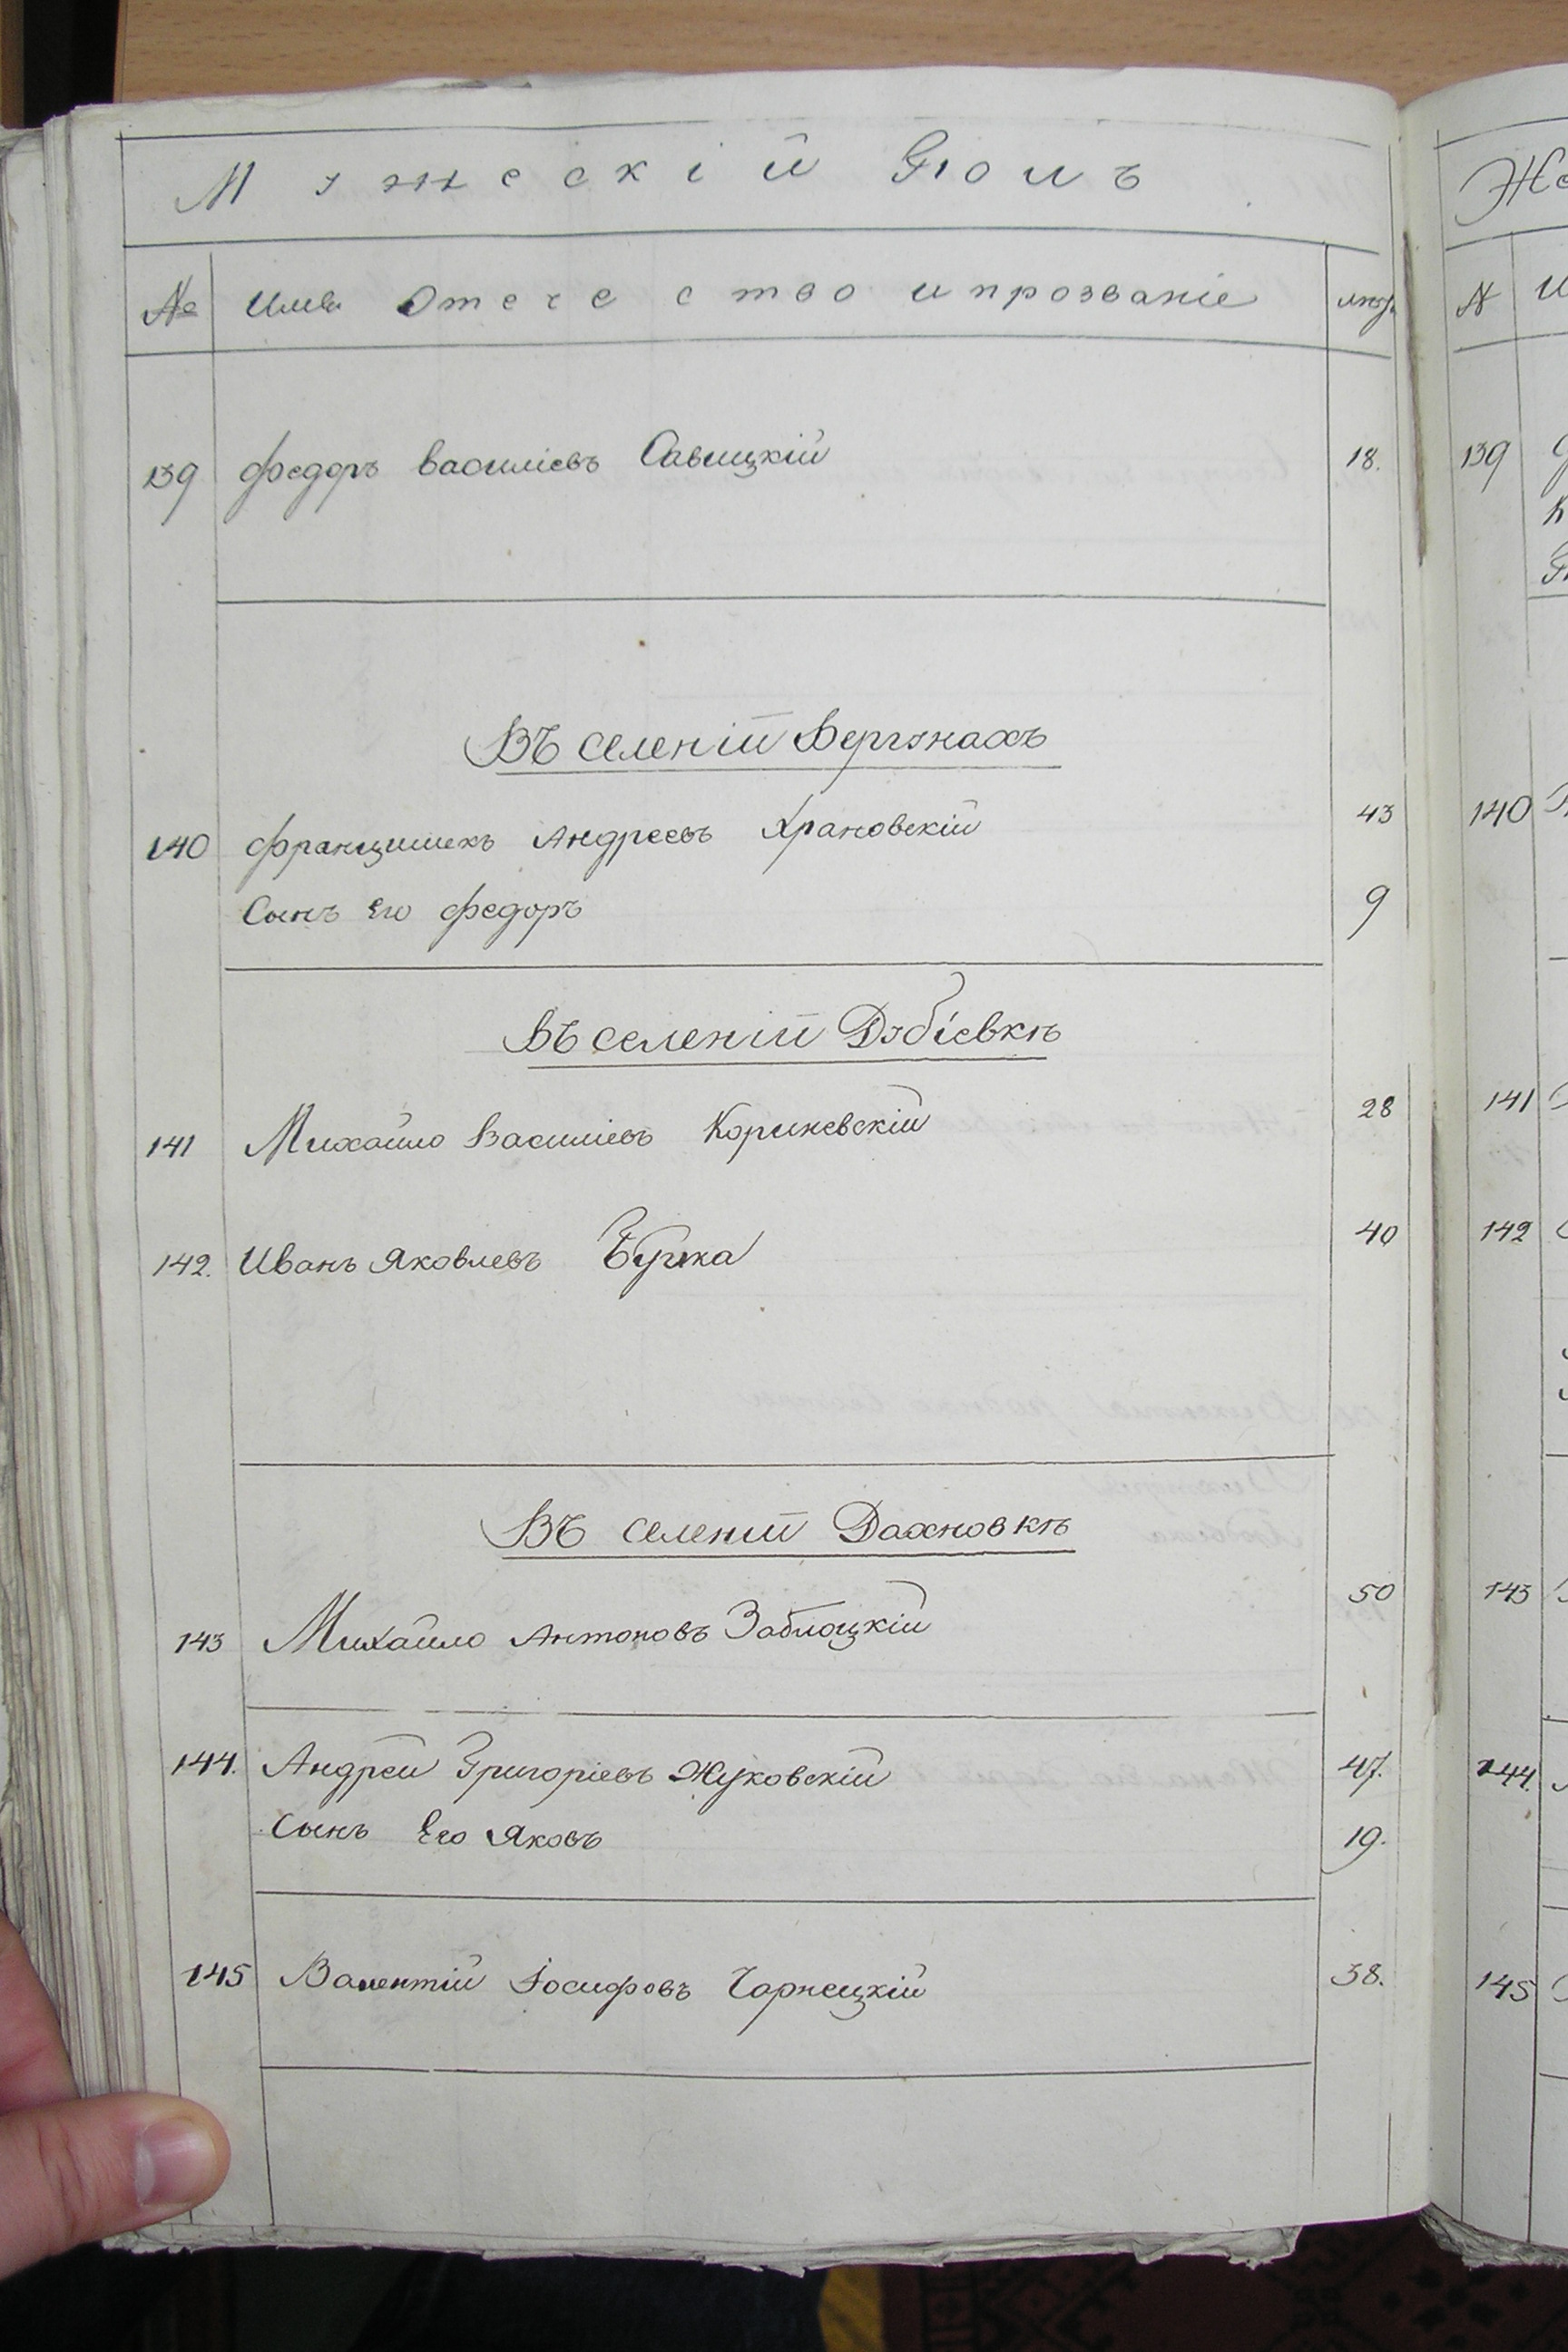 Мужескій Полъ
Же
№ Имя Отечество и прозваніе лѣта
N И
139 Федоръ Василіевъ Савицкій 18.
139
Въ селеніи Вергунахъ
140 Францишекъ Андреевъ Храновскій 43
140
Сынъ Его Федоръ 9
Въ селеніи Дубіевкѣ
141 Михайло Василіевъ Кориневскій 28
141
142. Иванъ Яковлевъ 40
142
Въ селеніи Дахновкѣ
143 Михайло Антоновъ Заблоцкій 50
143
144. Андрей Григоріевъ Жуковскій 47.
144.
Сынъ Его Яковъ 19.
145 Валентій Іосифовъ Чарнецкій 38.
145